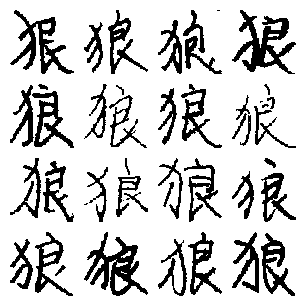 狠狼狼狠
狼狼狼狼
狼狼狼狼
狼狼狼狼